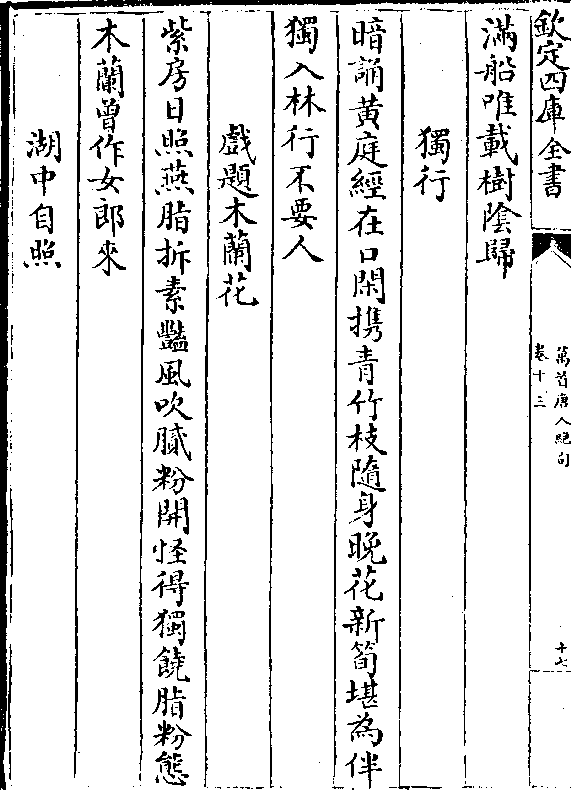 欽定四庫全書
萬首唐人絶句
卷十三
十七
滿船唯載樹陰歸
獨行
暗誦黄庭經在口閑携青竹枝隨身晚花新筍堪為伴
獨入林行不要人
戲題木蘭花
紫房日照燕脂拆素豔風吹膩粉開怪得獨饒脂粉態
木蘭曾作女郎來
湖中自照